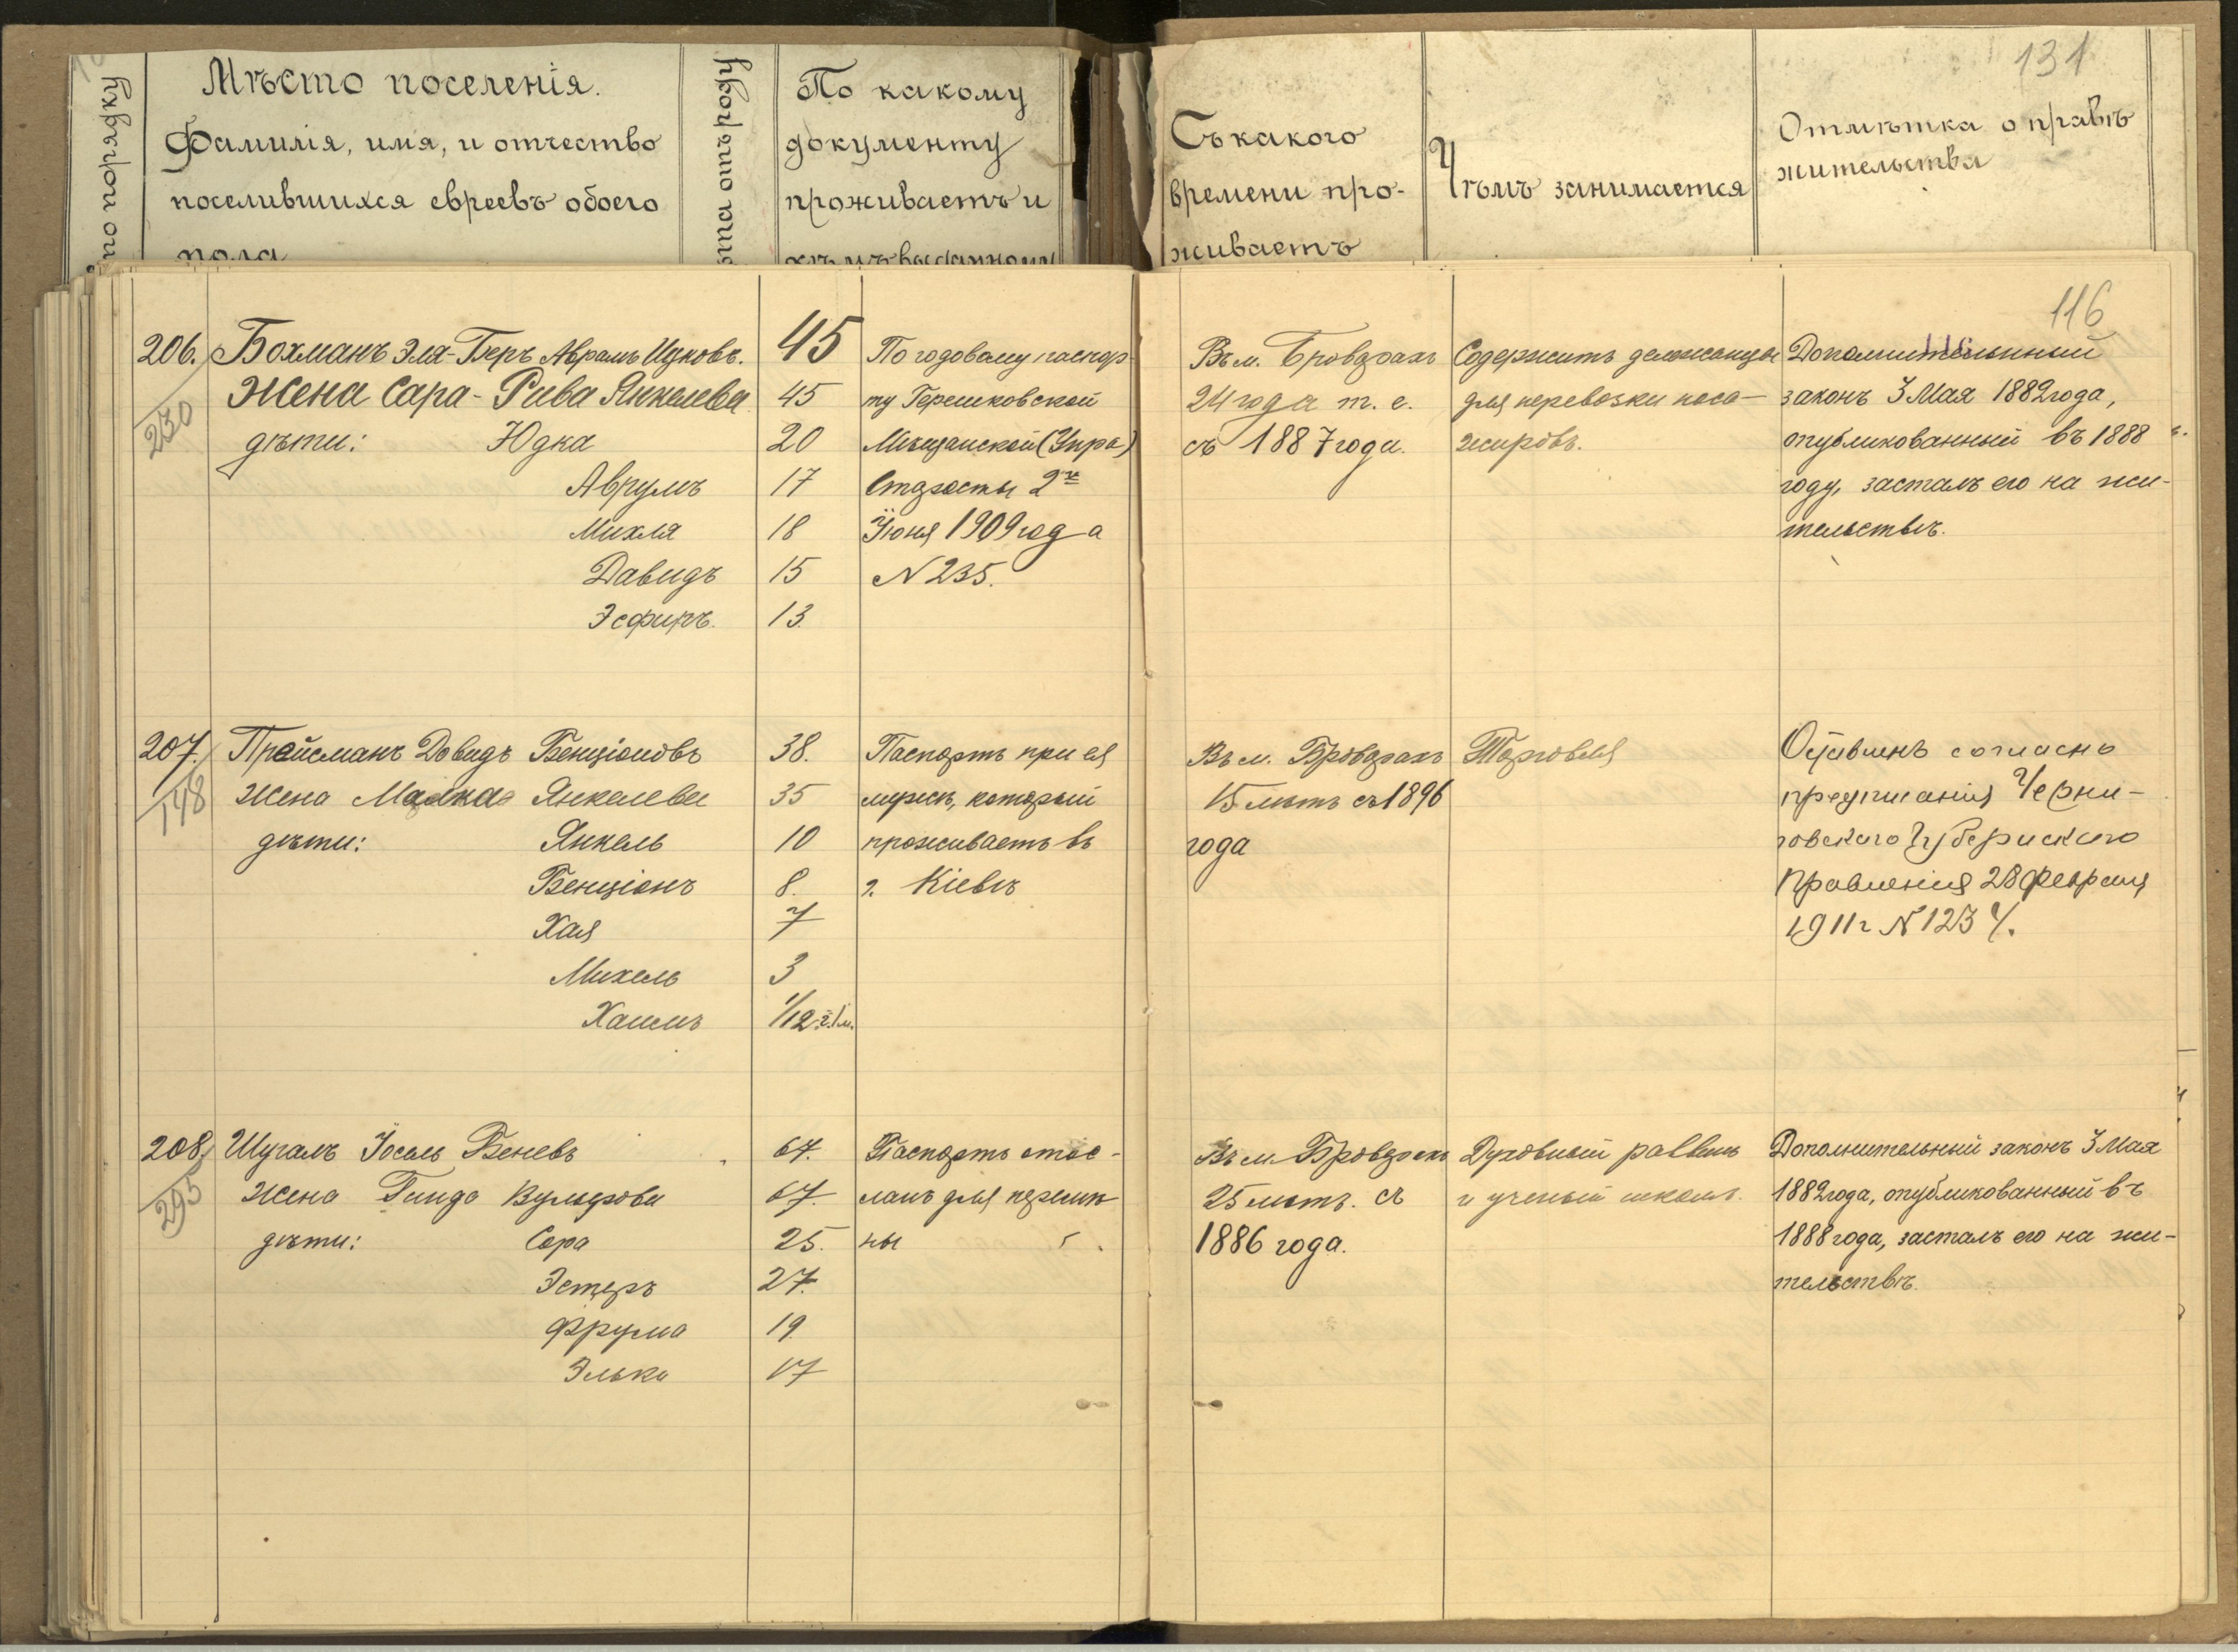 131
по порядку
Мѣсто поселенія.
Фамилія, имя, и отчество
поселившихся евреевъ обоего
пола
отъ роду
По какому
документу
проживаетъ и
кѣмъ выданному
Съ какого
времени про-
живаетъ
Чѣмъ занимается
Отмѣтка о правѣ
жительства
116
206.
230
Бохманъ Эля-Беръ Аврамъ Ицковъ.
Жена Сара-Рива Янкелева
дѣти: Юдка
Аврумъ
Михля
Давидъ
Эсфирь.
45
45
20
17
18
15
13.
По годовому паспор-
ту
Мѣщанской (Упра)
Старосты 2го
Іюня 1909 года
N 235.
Въ м. Броварахъ
24 года т. е.
съ 1887 года.
Содержитъ дилижанцы
для перевозки паса-
жировъ.
Дополнительный
законъ 3 Мая 1882 года,
опубликованный въ 1888
году, засталъ его на жи-
тельствѣ.
207.
148
Прайсманъ Довидъ Бенціоновъ
Жена Малка Янкелева
дѣти: Янкель
Бенціонъ
Хая
Михель
Хаимъ
38.
35
10
8.
7
3
1/12
Паспортъ при ея
мужѣ, который
проживаетъ въ
г. Кіевѣ
Въ м. Броварахъ
15 лѣтъ съ 1896
года
Торговля
Оставленъ согласно
предписанія Черни-
говскаго Губернскаго
Правленія 28 Февраля
1911 г N 1234.
208.
295
Шугалъ Іосель Беневъ
Жена Гинда Вульфова
дѣти: Сора
Эстеръ
Фрума
Элька
67.
67.
25.
27.
19
17
Паспортъ отос-
ланъ для перемѣ
ны
Въ м. Броварахъ
25 лѣтъ. съ
1886 года.
Духовный раввинъ
и ученый школы.
Дополнительный законъ 3 Мая
1882 года, опубликованный въ
1888 года, засталъ его на жи-
тельствѣ.